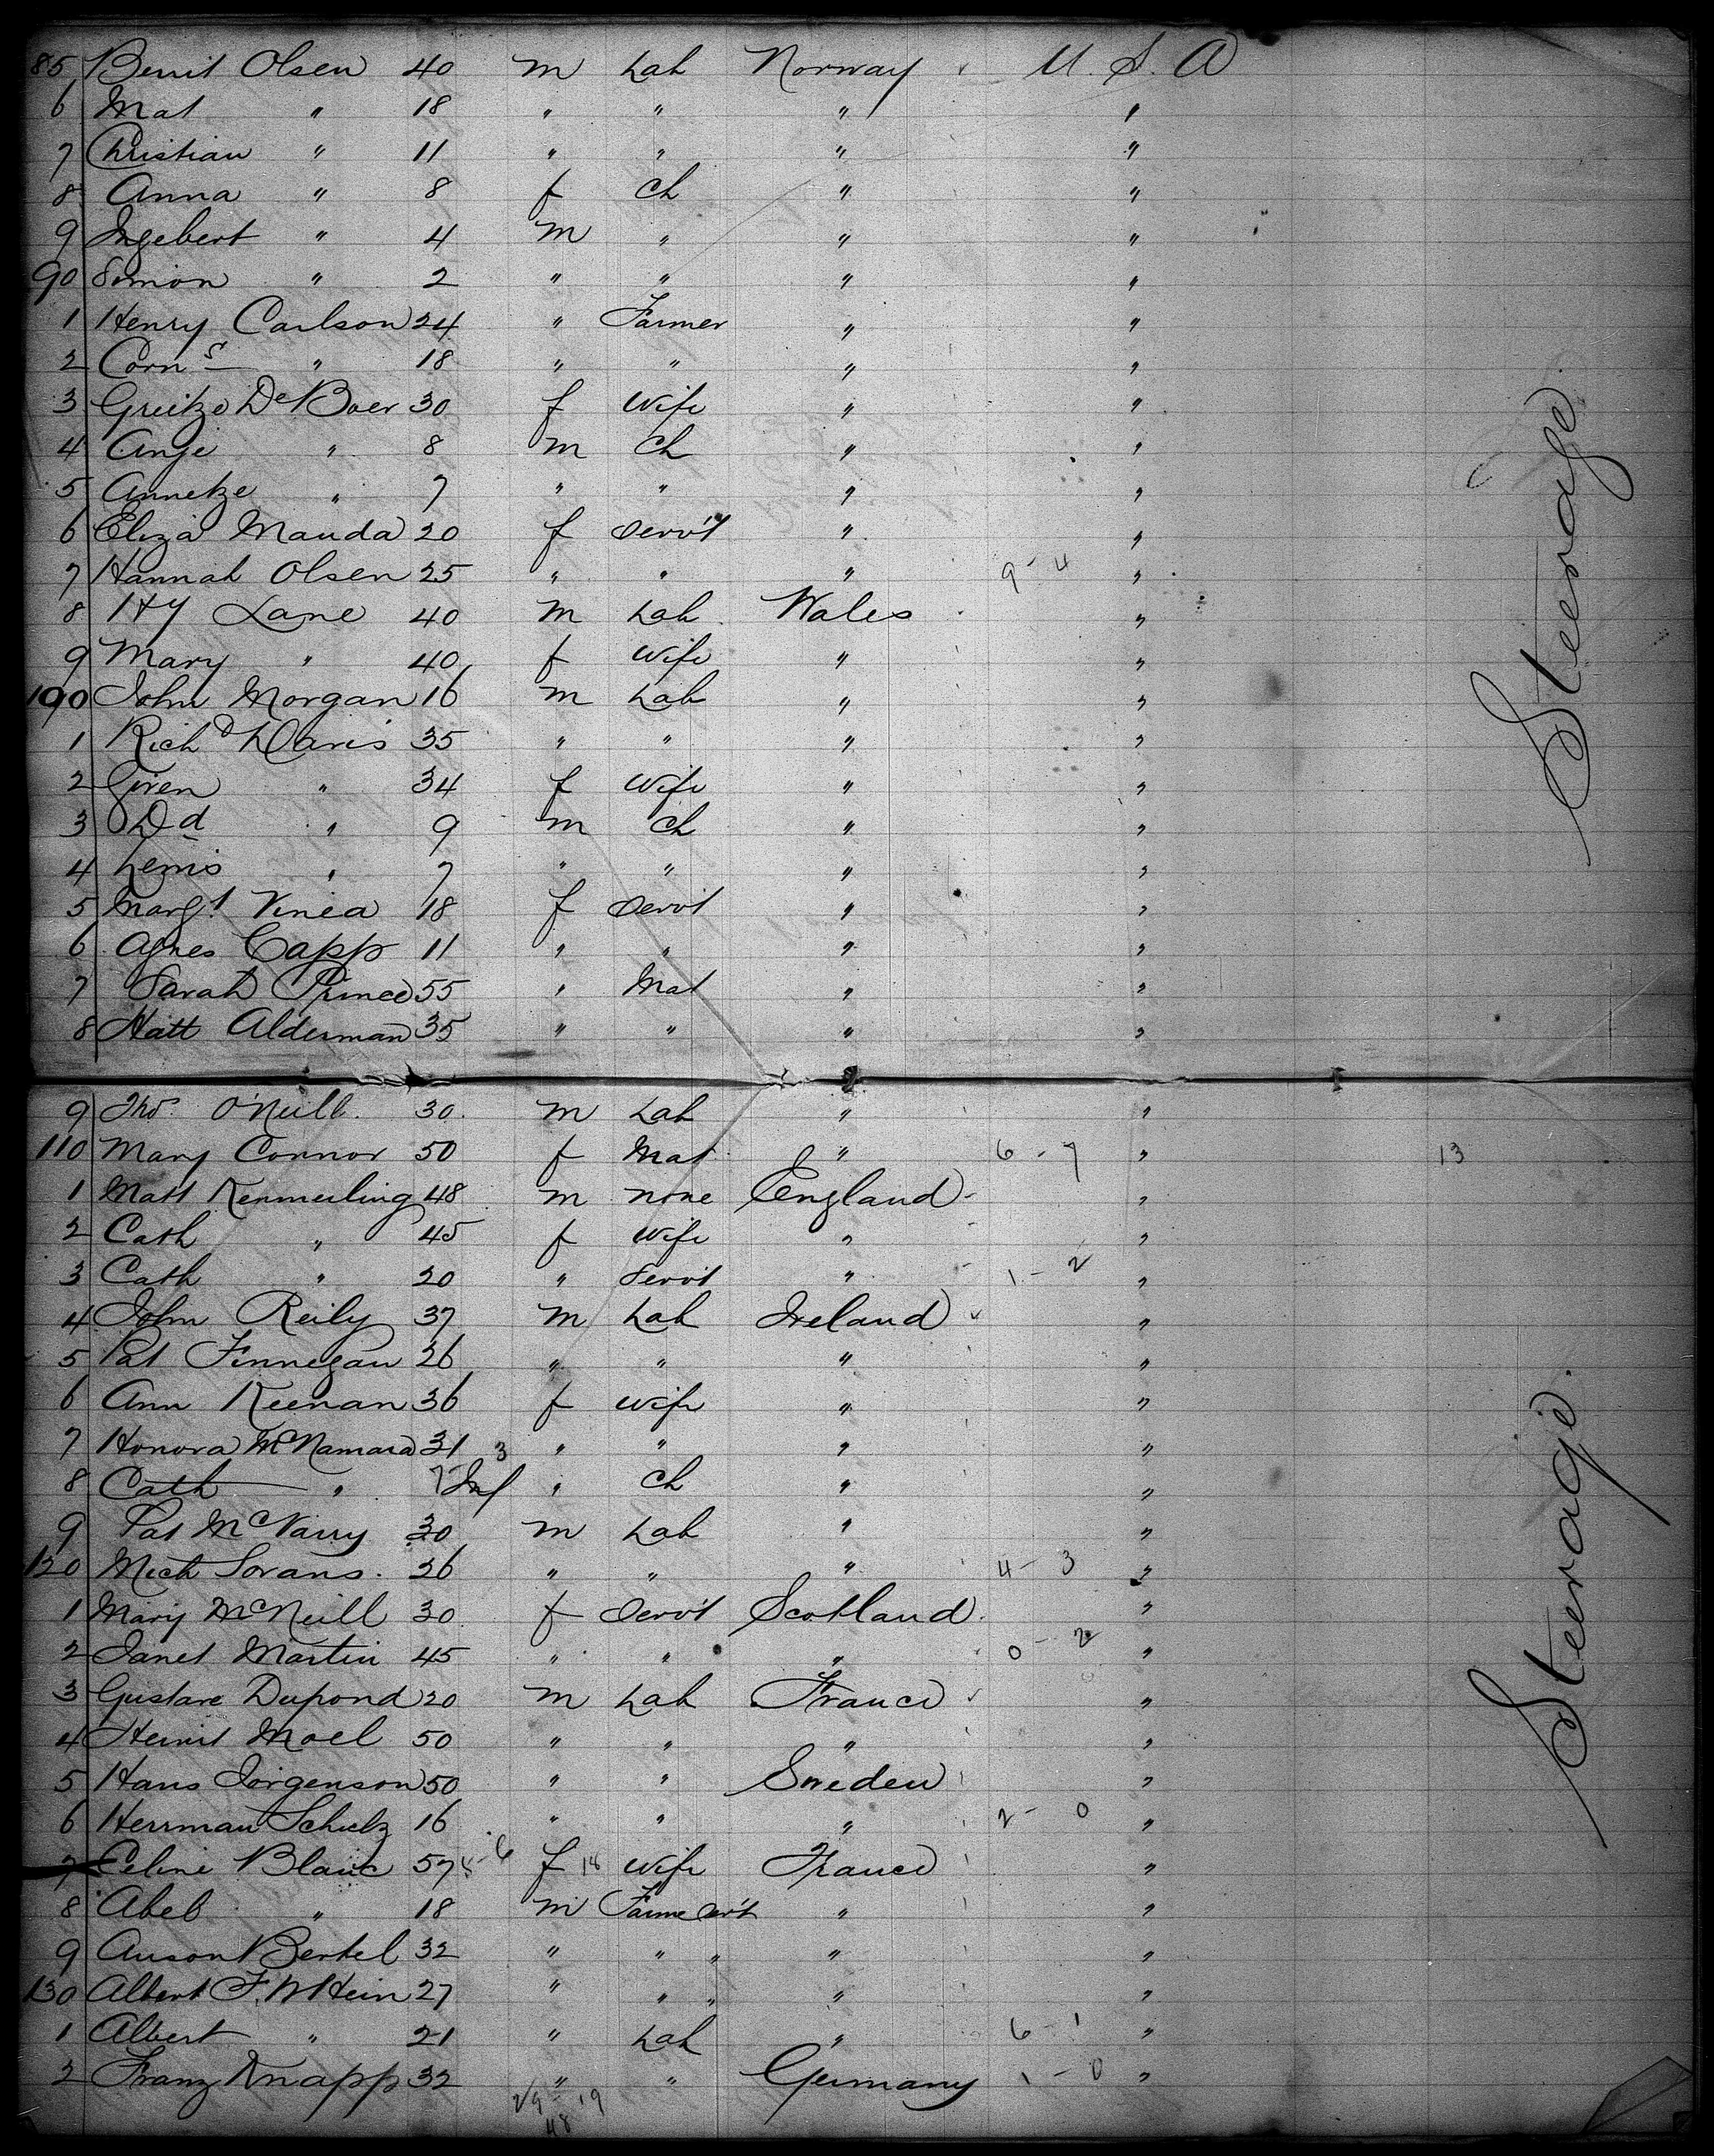 85 Berrit Olsen 40 m Lab Norway U. S. A
6 Mat " 18 " " " "
7 Christian " 11 " " " "
8 Anna " 8 f Ch " "
9 Ingebert " 4 m " " "
90 Simon " 2 " " " "
1 Henry Carlson 24 " Farmer " "
2 Corns " 18 " " " "
3 Greitze De Boer 30 f Wife " "
4 Anje " 8 m Ch " "
5 Annetze " 7 " " " "
6 Eliza Manda 20 f Serv't " "
7 Hannah Olsen 25 " " " 9 - 4 "
8 Hy Lane 40 m Lab Wales "
9 Mary " 40 f Wife " "
190 John Morgan 16 m Lab " "
1 Richd Davis 35 " " " "
2 Gwen " 34 f Wife " "
3 Dd " 9 m Ch " "
4 Lewis " 7 " " " "
5 Margt Vinea 18 f Servt " "
6 Agnes Capp 11 " " " "
7 Sarah Prince 55 " Mat " "
8 Hatt Alderman 35 " " " "
Steerage.
9 Thos. O'Neill. 30 m Lab " "
110 Mary Connor 50 f Mat " 6 - 7 " 13
1 Matt Kenmerling 48 m none England "
2 Cath " 45 f Wife " "
3 Cath " 20 " Servt " 1 - 2 "
4 John Reily 37 m Lab Ireland "
5 Pat Finnegan 26 " " " "
6 Ann Keenan 36 f Wife " "
7 Honora McNamara 31 3 " " " "
8 Cath " 7 Inf " Ch " "
9 Pat McVarry 30 m Lab " "
120 Mich Sorans. 26 " " " 4 - 3 "
1 Mary McNeill 30 f Serv't Scotland. "
2 Janet Martin 45 " " " 0 - 2 "
3 Gustave Dupond 20 m Lab France "
4 Moel 50 " " " "
5 Hans Jorgenson 50 " " Sweden "
6 Herrman Schulz 16 " " " 2 - 0 "
7 Celine Blanc 57 f 18 Wife France "
8 Abel " 18 m Farme Servt " "
9 Auson Bertel 32 " " " " "
130 Albert F. 27 " " " " "
1 Albert " 21 " Lab " 6 - 1 "
2 Franz Knapp 32 " " Germany 1 - 0 "
29 - 19
48
Steerage.